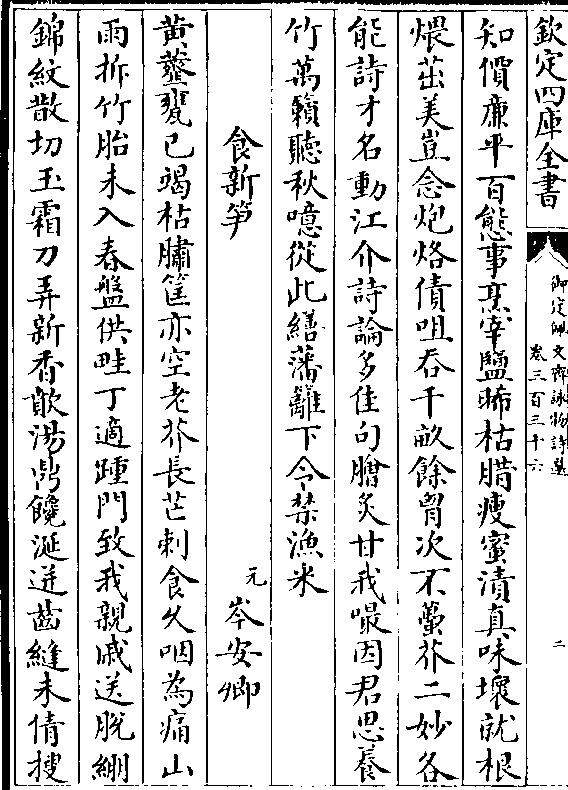 欽定四庫全書
御定佩文齋詠物詩選
卷三百三十六
二
知價廉平百態事烹宰鹽晞枯腊瘦蜜漬真味壞就根
煨茁美豈念炮烙債咀吞千畝餘胷次不蠆芥二妙各
能詩才名動江介詩論多佳句膾炙甘我嘬因君思養
竹萬籟聽秋噫從此繕藩籬下令禁漁米
食新笋
元
岑安卿
黄虀甕已竭枯鱐筐亦空老芥長芒刺食久咽為痛山
雨拆竹胎未入春盤供畦丁適踵門致我親戚送脫綳
錦紋散切玉霜刀弄新香歕湯鼎饞涎迸齒縫未倩搜